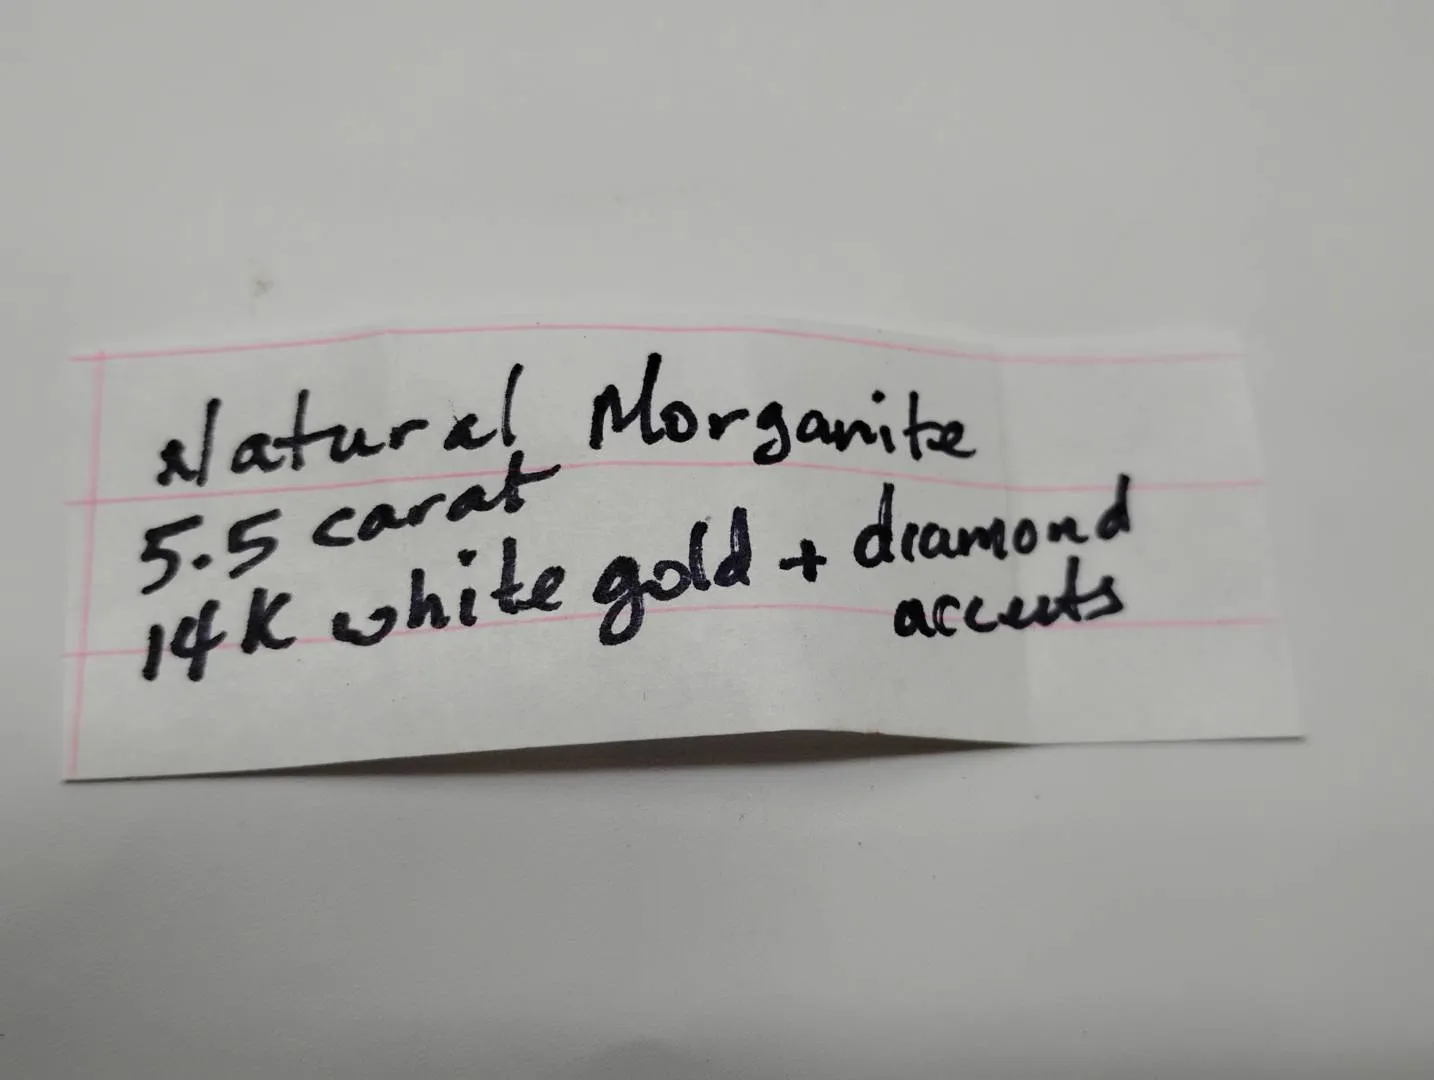 Natural Morganite
5.5 carat
14K white gold + diamond
accents